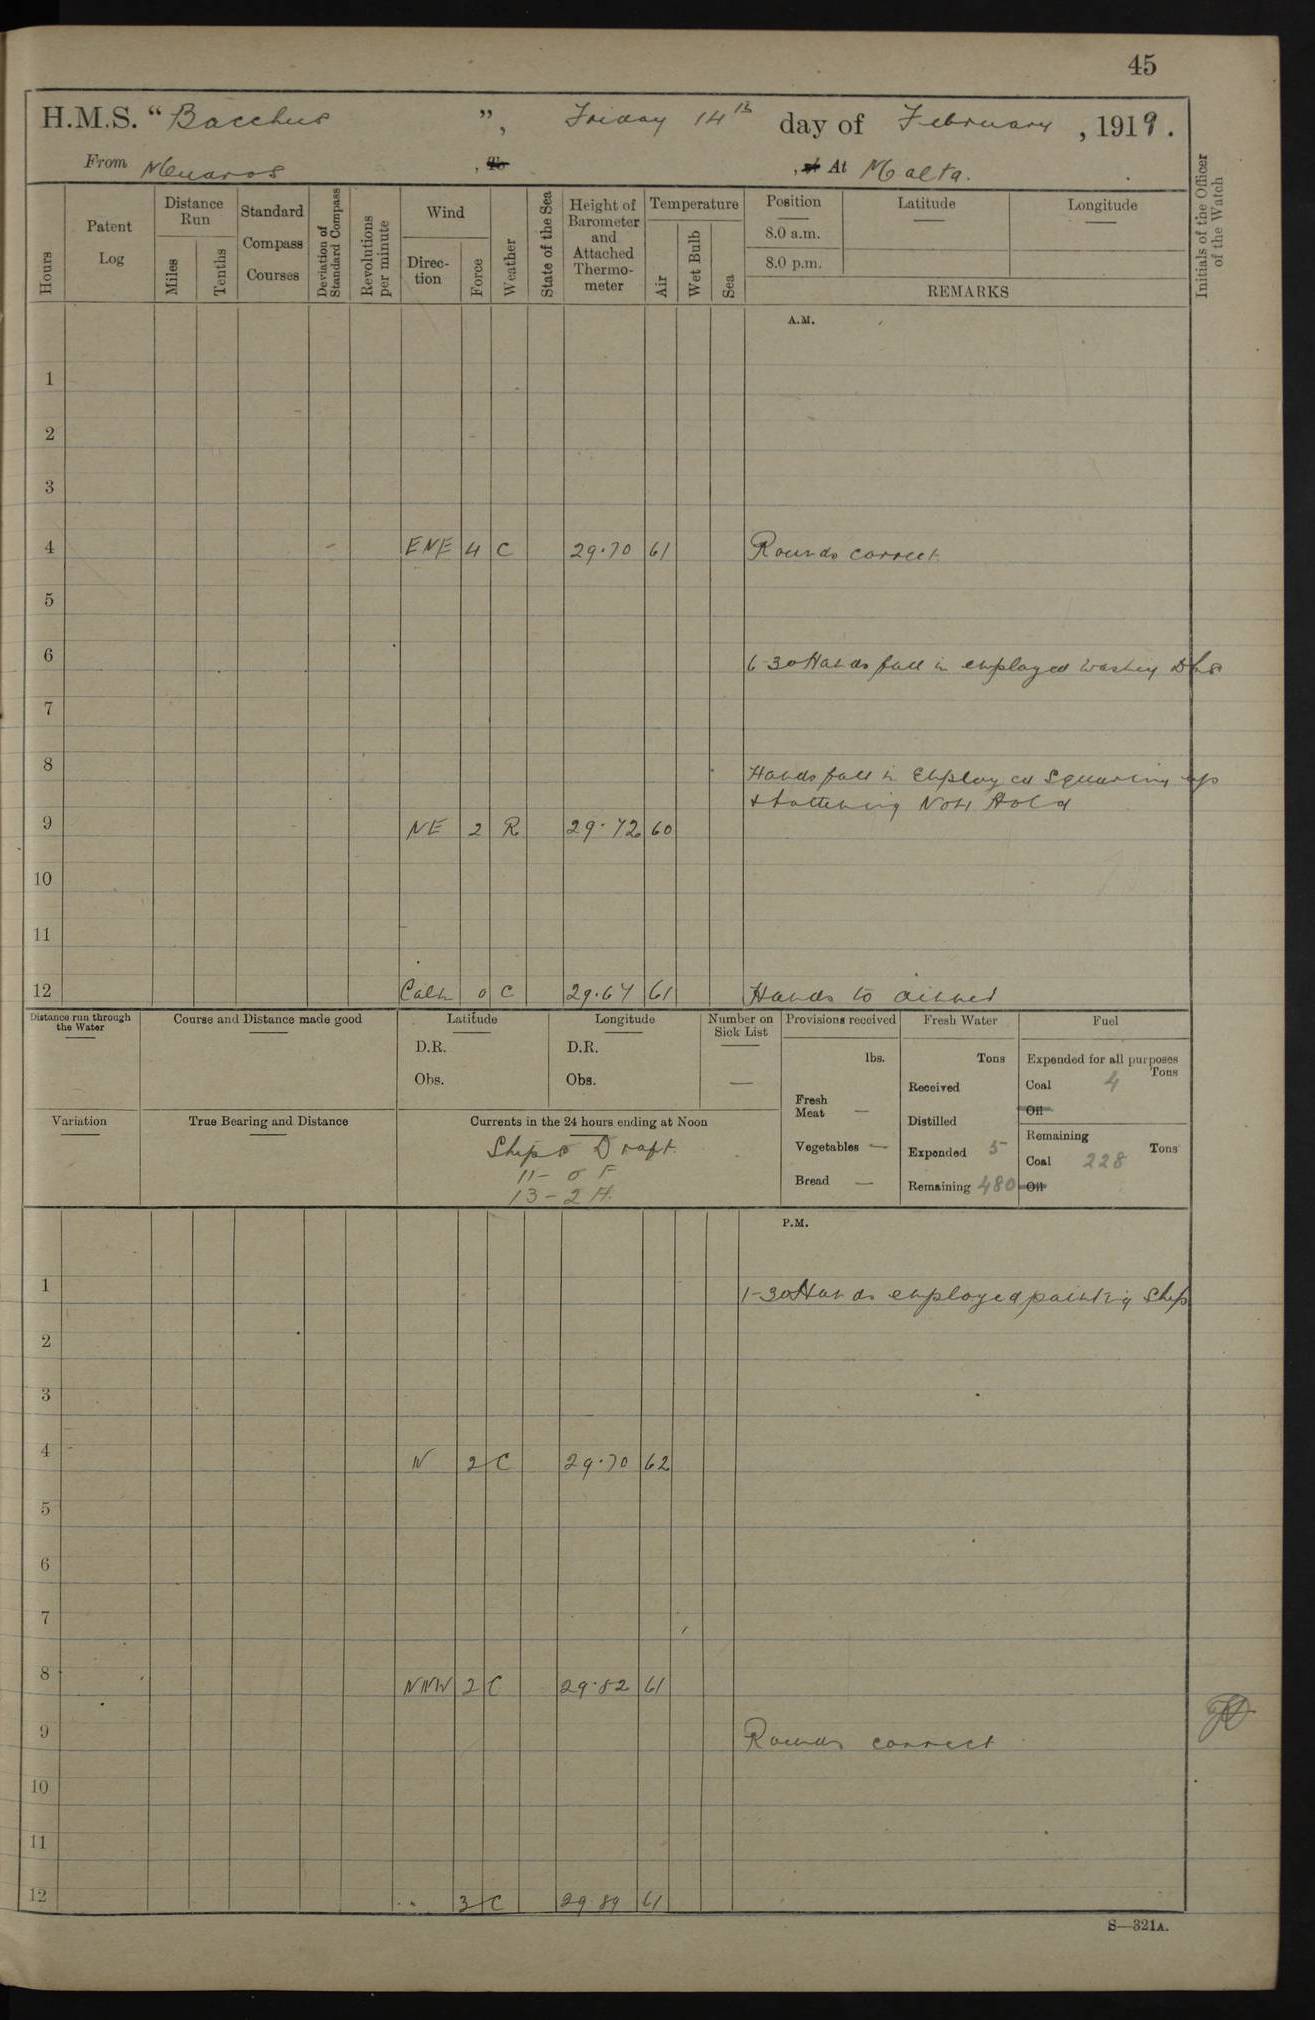 45
H.M.S. “Bacchus ”, Friday 14th day of February, 1919.
From Mudros , To , at At Malta.
Hours Patent Log Distance Run Miles Tenths Standard Compass Courses Deviation of Standard Compass Revolutions per minute Wind Direc-tion Force Weather State of the Sea Height of Barometer and Attached Thermo-meter Temperature Air Wet Bulb Sea Position 8.0 a.m. 8.0 p.m. Latitude Longitude REMARKS Initials of the Officer of the Watch
A.M.
1
2
3
4 ENE 4 C 29.70 61 Rounds correct
5
6 6-30 Hands fall in employed washing Dks
7
8 Hands fall in Employed Squaring up
& battening No 4 Hold
9 NE 2 R 29.72 60
10
11
12 Calm 0 C 29.67 61 Hands to dinner
Distance run through the Water Course and Distance made good Latitude Longitude Number on Sick List Provisions received Fresh Water Fuel
D.R. D.R. lbs. Tons Expended for all purposes Tons
Obs. Obs. — Received Coal 4
Fresh Meat — Oil
Variation True Bearing and Distance Currents in the 24 hours ending at Noon Distilled Remaining
Ships Draft Vegetables — Expended 5 Coal 228 Tons
11-0 F
13-2 A. Bread — Remaining 480 Oil
P.M.
1 1-30 Hands employed painting Ship
2
3
4 N 2 C 29.70 62
5
6
7
8 NNW 2 C 29.82 61
9 Rounds correct
10
11
12 .. 3 C 29.89 61
S—321A.